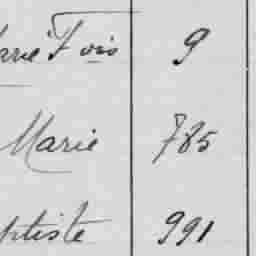 arie Fois 9
Marie 785
ptiste 991